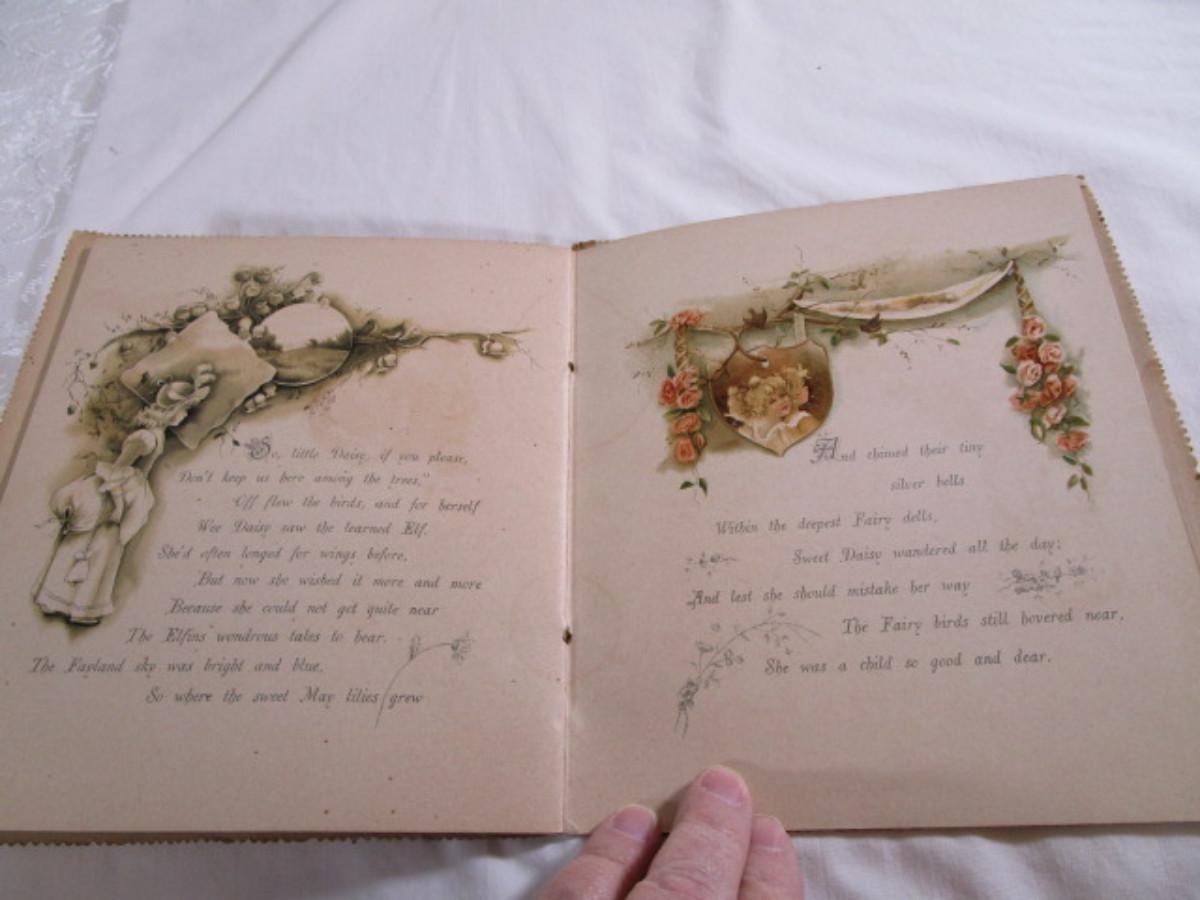 So, little Daisy, if you please,
Don't keep us here among the trees,"
Off flew the birds, and for herself
Wee Daisy saw the learned Elf.
She'd often longed for wings before,
But now she wished it more and more
Because she could not get quite near
The Elfins wondrous tales to hear.
The Fayland sky was bright and blue,
So where the sweet May lilies grew
And chimed their tiny
silver bells
Within the deepest Fairy dells,
Sweet Daisy wandered all the day;
And lest she should mistake her way
The Fairy birds still hovered near,
She was a child so good and dear.